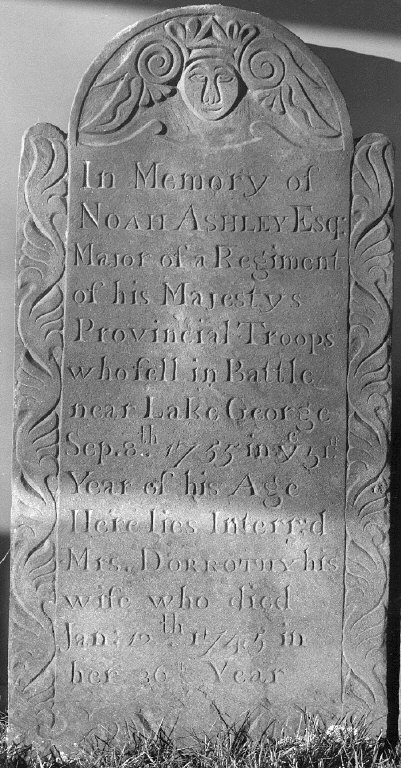 In Memory of
NOAH ASHLEY Esqr.
Major of a Regiment
of his Majestys
Provincial Troops
who fell in Battle
near Lake George
Sep. 8th 1755 in ye 51st
Year of his Age
Here lies Interr:d
Mrs. DORROTHY his
wife who died
Jan: 12th 1745 in
her 36th Year